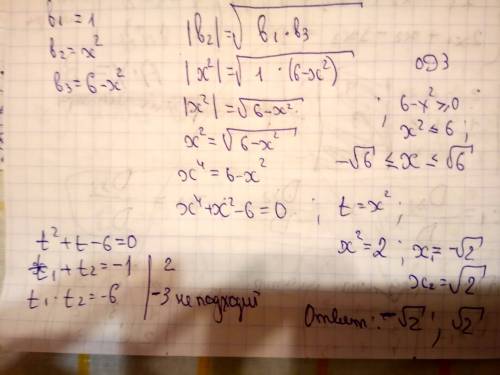 b₁ = 1
b₂ = x²
b₃ = 6 - x²
|b₂| = √(b₁ · b₃)
|x²| = √(1 · (6 - x²))
|x²| = √(6 - x²)
x² = √(6 - x²)
x⁴ = 6 - x²
x⁴ + x² - 6 = 0 ; t = x² ;
ОДЗ
; 6 - x² ≥ 0
x² ≤ 6 ;
-√6 ≤ x ≤ √6
t² + t - 6 = 0
t₁ + t₂ = -1 | 2
t₁ · t₂ = -6 | -3 не подходит
x² = 2 ; x₁ = -√2
x₂ = √2
Ответ: -√2 ; √2